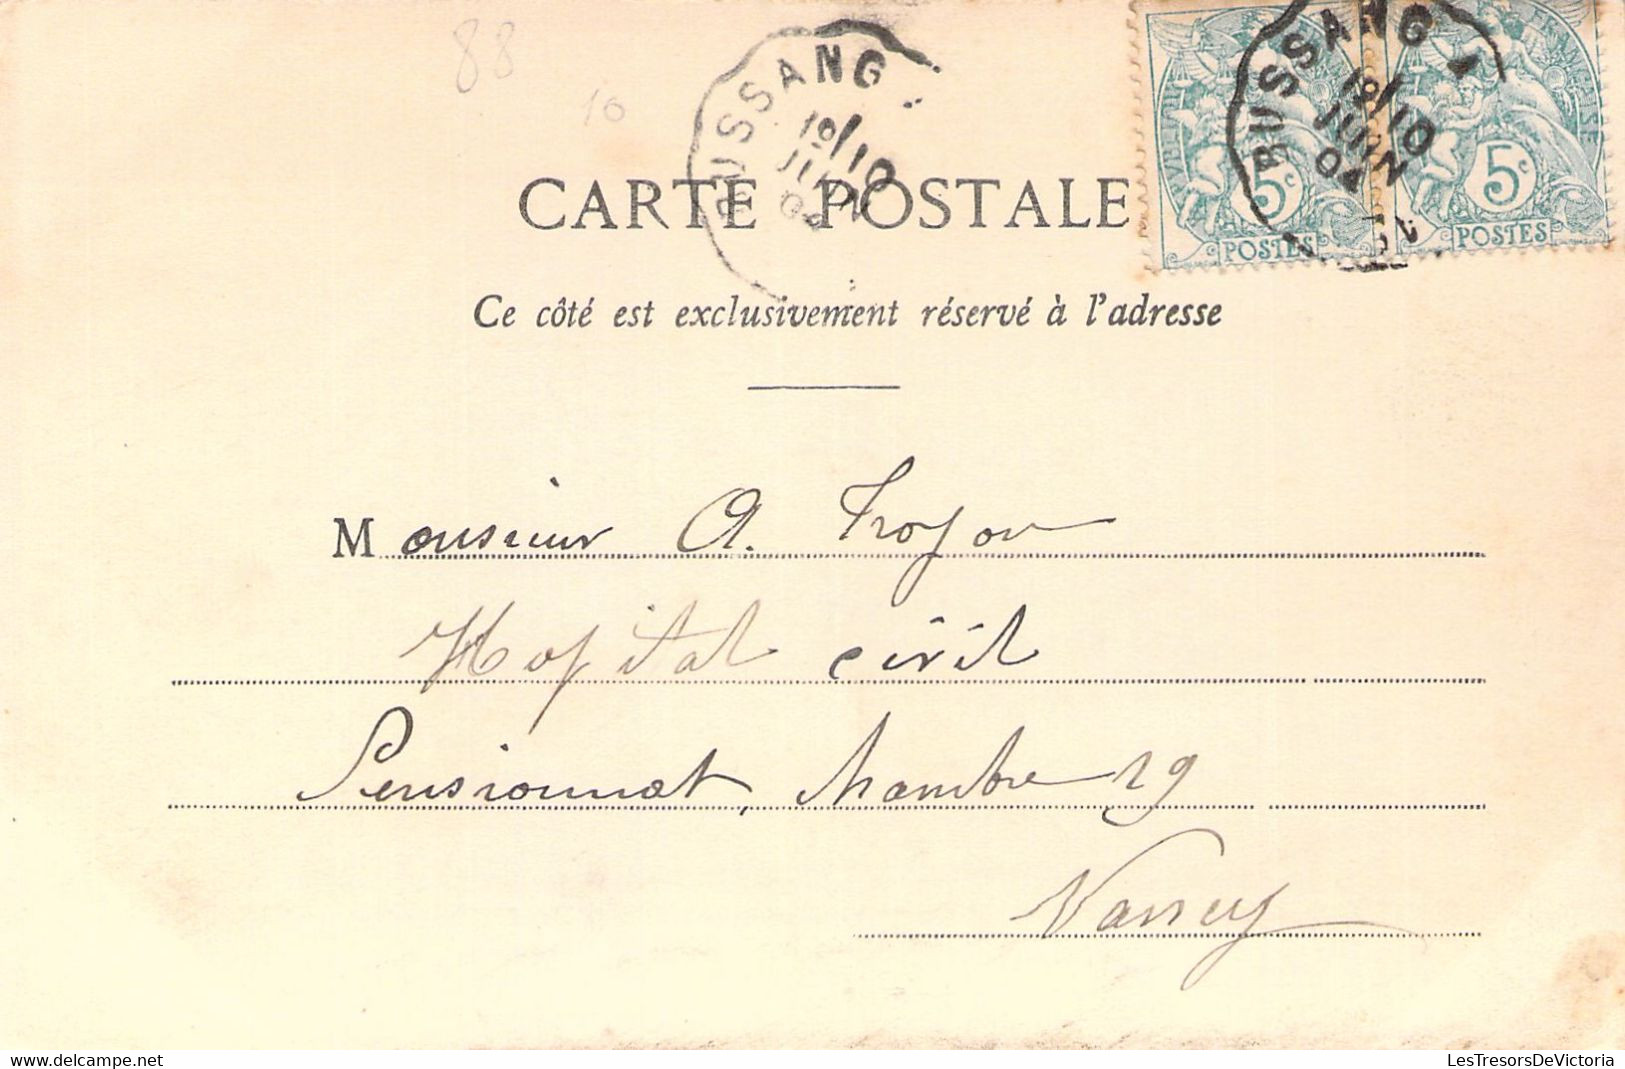 88
10
BUSSANG
10/10
JUIN
04
BUSSANG
10/10
JUIN
04
5c
POSTES
5c
POSTES
CARTE POSTALE
Ce côté est exclusivement réservé à l'adresse
Monsieur A. Troyon
Hopital civil
Pensionnat, chambre 29
Nancy
www.delcampe.net
LesTresorsDeVictoria